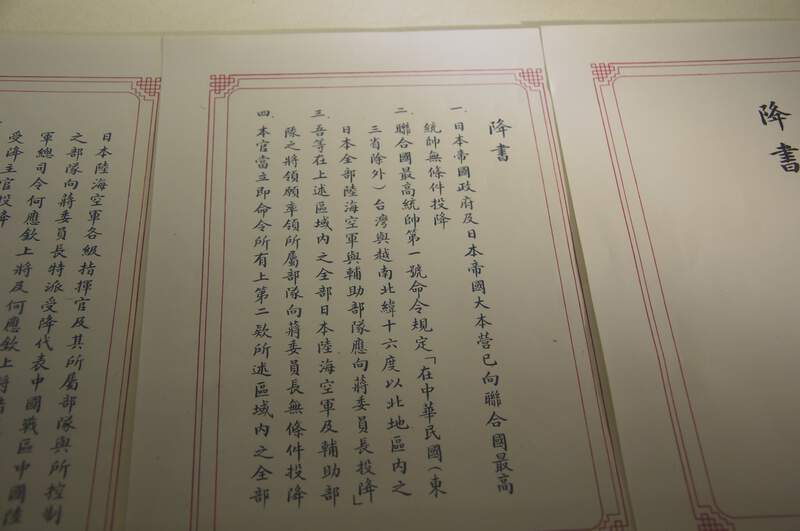 降書
降書
一、日本帝國政府及日本帝國大本營已向聯合國最高
統帥無條件投降
二、聯合國最高統帥第一號命令規定「在中華民國（東
三省除外）台灣與越南北緯十六度以北地區內之
日本全部陸海空軍與輔助部隊應向蔣委員長投降」
三、吾等在上述區域內之全部日本陸海空軍及輔助部
隊之將領願率領所屬部隊向蔣委員長無條件投降
四、本官當立即命令所有上第二款所述區域內之全部
日本陸海空軍各級指揮官及其所屬部隊與所控制
之部隊向蔣委員長特派受降代表中國戰區中國陸
軍總司令何應欽上將及何應欽上將指
受降主官投降